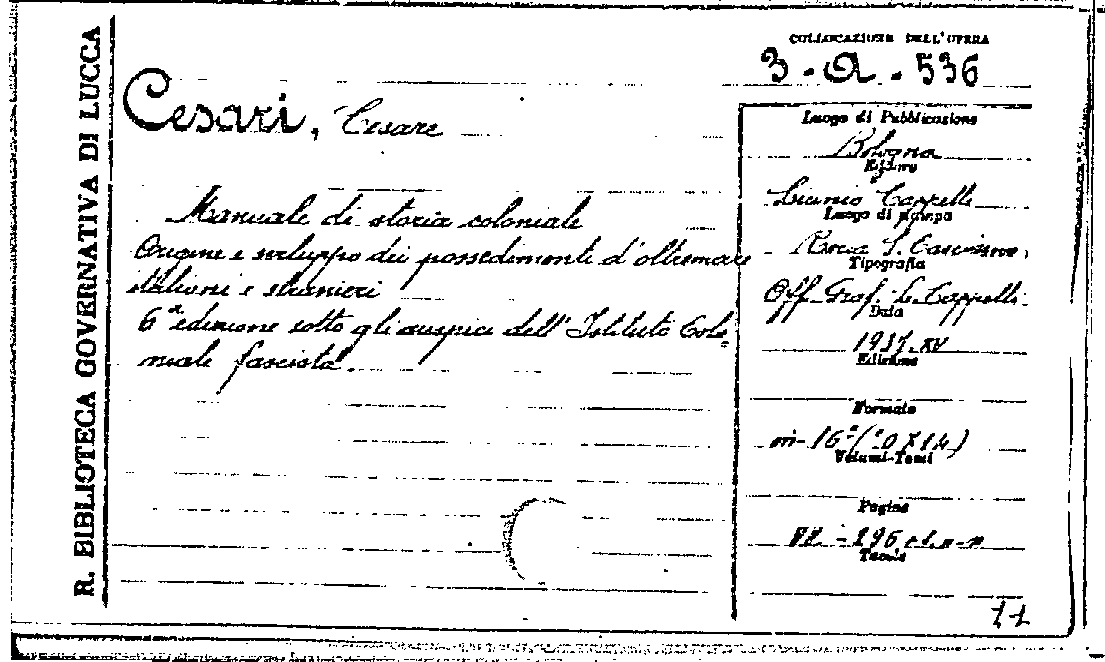 R. BIBLIOTECA GOVERNATIVA DI LUCCA
COLLOCAZIONE DELL'OPERA
3-Q-536
Cesari, Cesare
Manuale di storia coloniale
Origine e sviluppo dei possedimenti d'oltremare
italiani e stranieri
6ª edizione sotto gli auspici dell'Istituto Colo=
niale fascista.
Luogo di Pubblicazione
Bologna
Editore
Licinio Cappelli
Luogo di stampa
Rocca S. Casciano,
Tipografia
Off. Graf. L. Cappelli.
Data
1937. XV
Edizione
Formato
in-16º
Volumi-Tomi
Pagine
296
Tavole